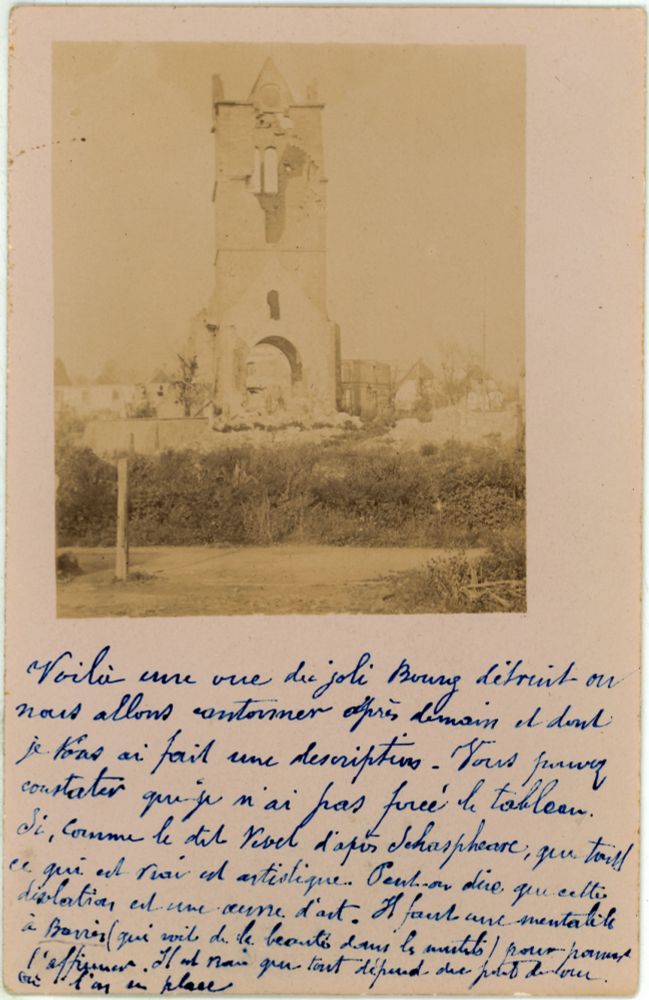 Voilà une vue du joli Bourg détruit où
nous allons cantonner après demain et dont
je vous ai fait une description. Vous pouvez
constater que je n'ai pas forcé le tableau.
Si, comme le dit d'après Schaspheare, que tout
ce qui est vrai est artistique. Peut-on dire que cette
désolation est une œuvre d'art. Il faut une mentalité
à Barrès (qui voit de la beauté dans les mutilés) pour pouvoir
l'affirmer. Il est vrai que tout dépend du point de vue
où l'on se place